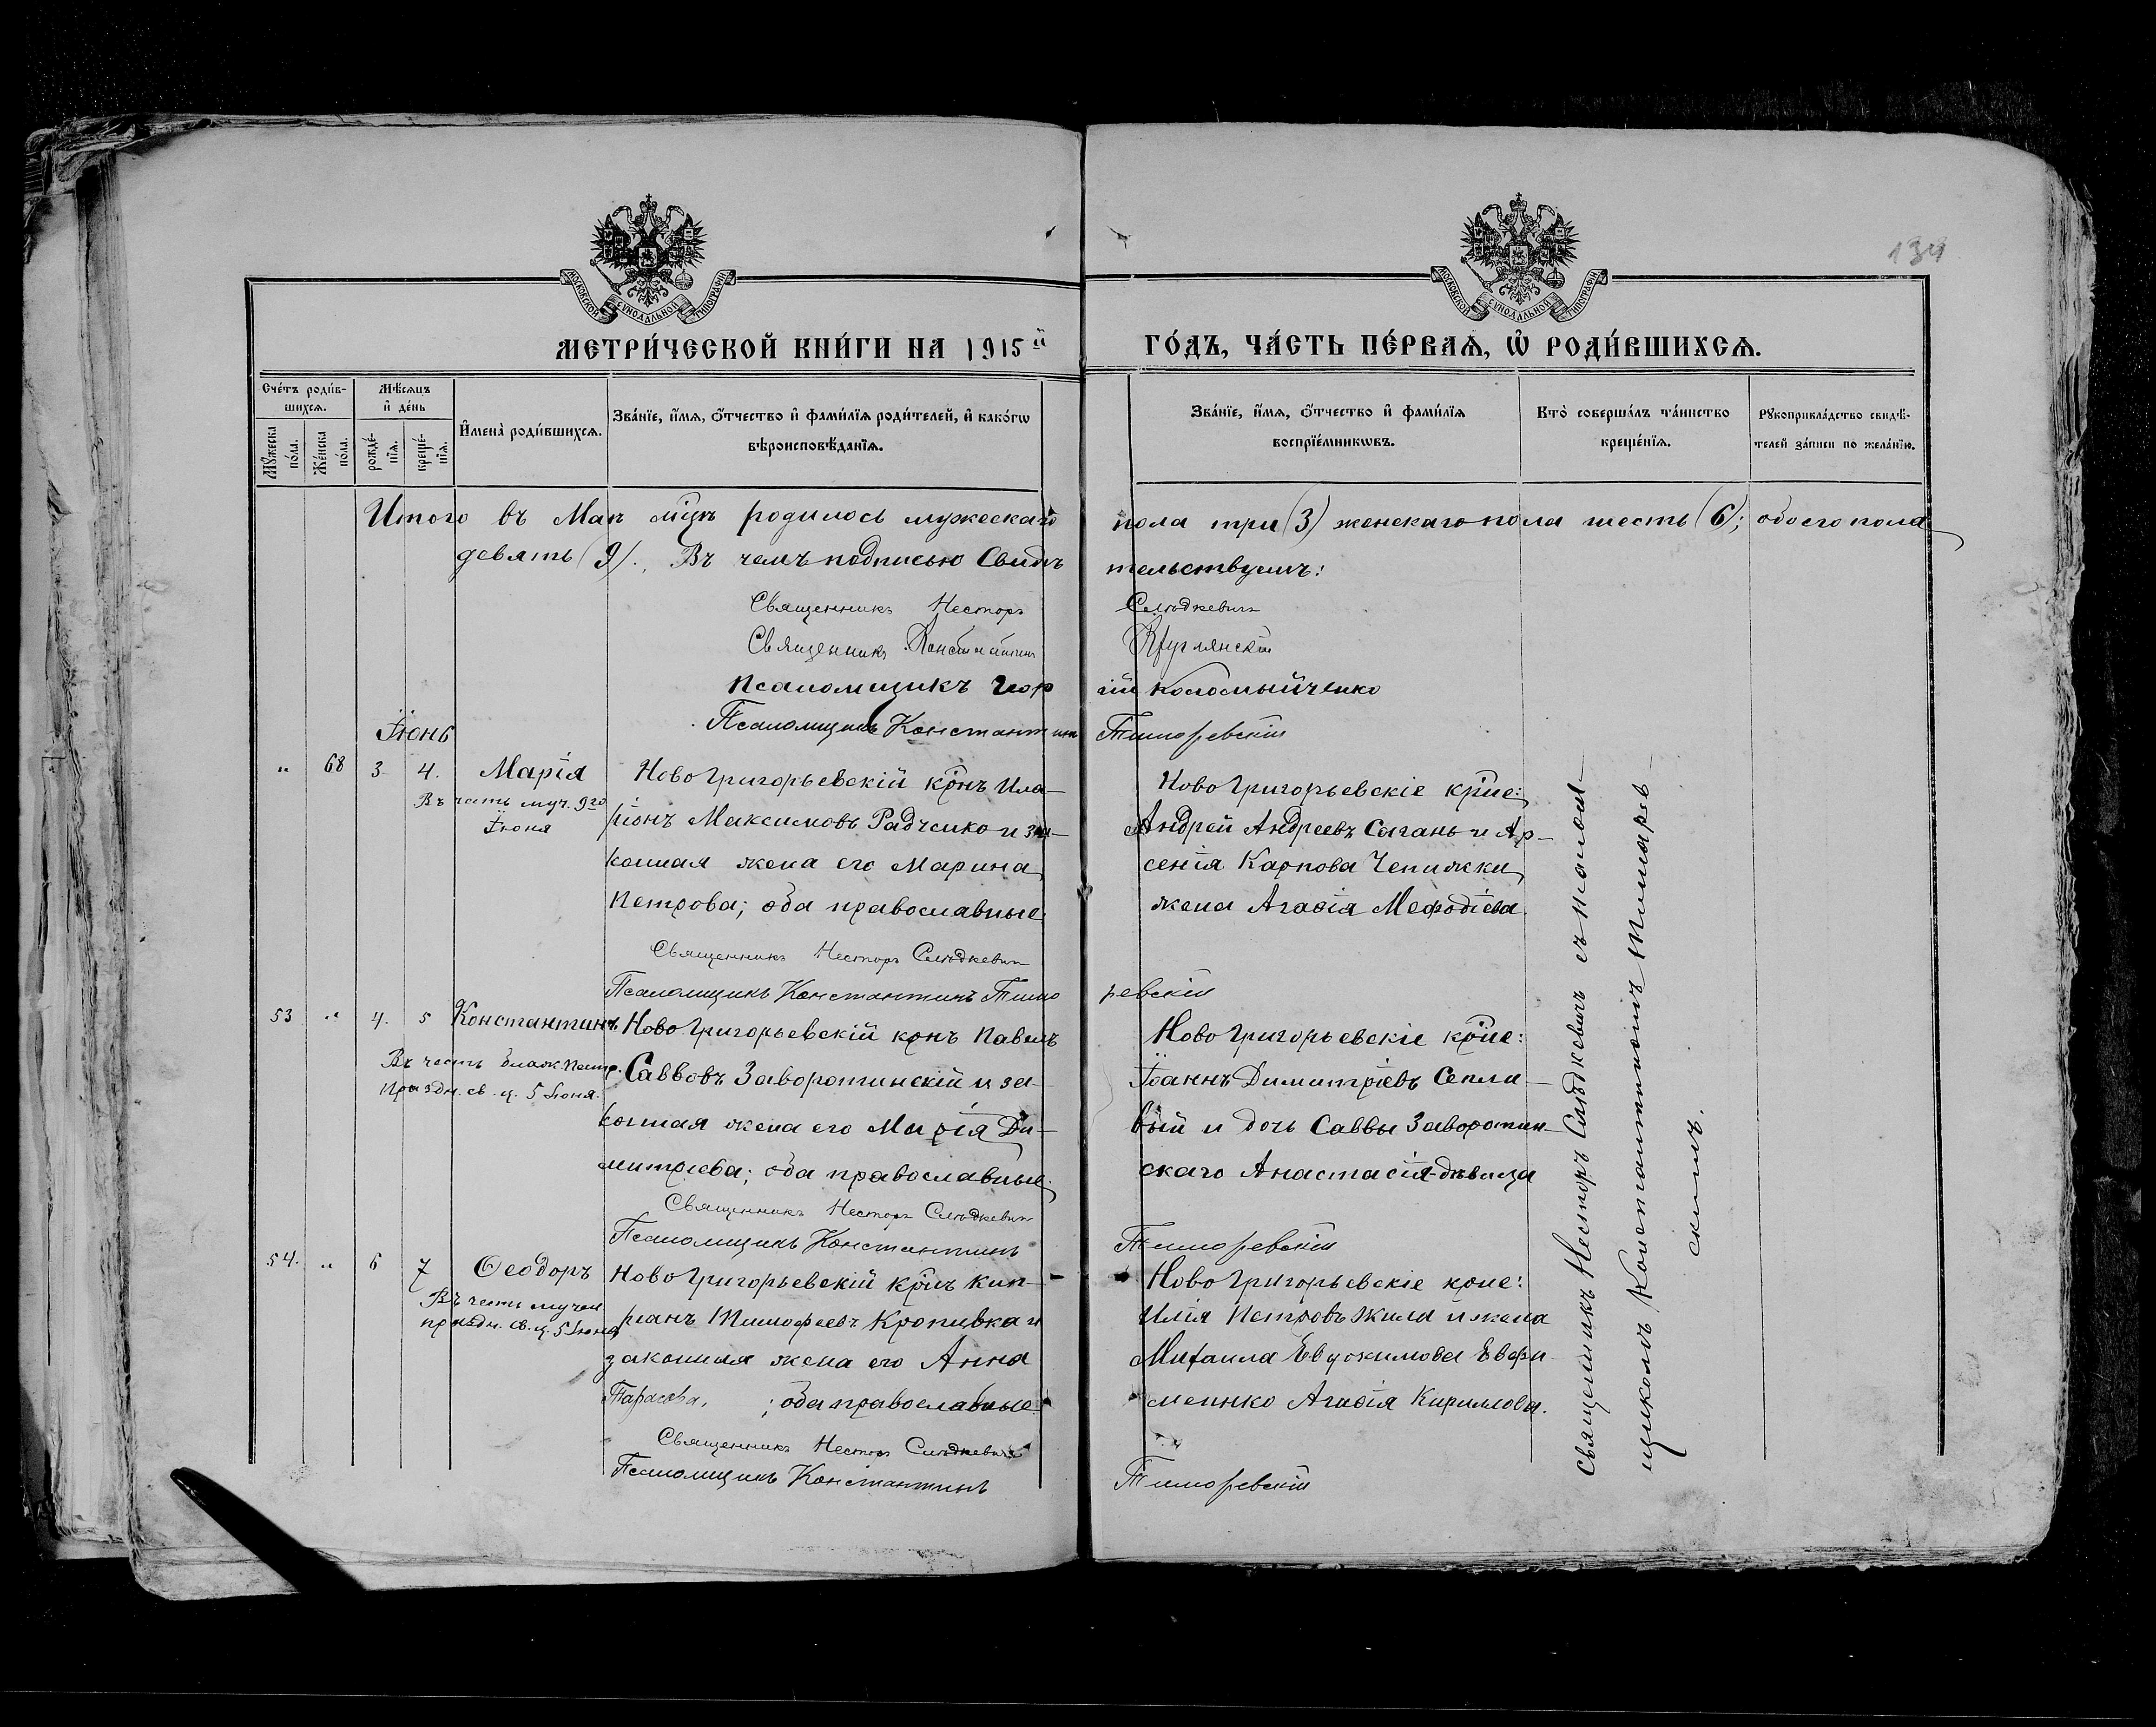 134
МОСКОВСКОЙ СѴНОДАЛЬНОЙ ТИПОГРАФІИ
МОСКОВСКОЙ СѴНОДАЛЬНОЙ ТИПОГРАФІИ
МЕТРИ́ЧЕСКОЙ КНИ́ГИ НА 1915й ГО́ДЪ, ЧА́СТЬ ПЕ́РВАѦ, Ѽ РОДИ́ВШИХСѦ.
Сче́тъ роди́в-
шихсѧ.
Мꙋ́жеска
по́ла.
Же́нска
по́ла.
Мѣ́сѧцъ
и҆ де́нь
рожде́-
нїѧ.
креще́-
нїѧ.
И҆мена̀ роди́вшихсѧ.
Зва́нїе, и҆́мѧ, ѻ҆́тчество и҆ фами́лїѧ роди́телей, и҆ како́гѡ
вѣроисповѣ́данїѧ.
Зва́нїе, и҆́мѧ, ѻ҆́тчество и҆ фами́лїѧ
воспрїе́мникѡвъ.
Кто̀ соверша́лъ та́инство
креще́нїѧ.
Рꙋкоприкла́дство свидѣ́-
телей за́писи по жела́нїю.
Итого въ Маѣ мцѣ родилось мужескаго пола три (3) женскаго пола шесть (6); обоего пола
девять (9). Въ чемъ подписью Свидѣтельствуемъ:
Священникъ Несторъ Слюдкевич
Священникъ Константинъ Круглянскій
Псаломщикъ Георгій Коломыйченко
Псаломщикъ Константинъ Тиморевскій
Іюнь
" 68 3 4. Марія
Въ честь муч. 9го
Іюня
НовоГригорьевскій крнъ Ила-
ріонъ Максимовъ Радченко и за-
конная жена его Марина
Петрова; оба православные
НовоГригорьевскіе крне:
Андрей Андреевъ Сагань и Ар-
сенія Карпова Чепижки
жена Агафія Мефодіева.
Священникъ Несторъ Слюдкевич
Псаломщикъ Константинъ Тиморевскій
53 " 4. 5 Константинъ
Въ честь
праздн. св. ц. 5 Іюня.
НовоГригорьевскій крнъ Павелъ
Саввовъ Заворотинскій и за-
конная жена его Марія Ди-
митріева; оба православные.
НовоГригорьевскіе крне:
Іоаннъ Димитріевъ
и дочь Саввы Заворотин-
скаго Анастасія-дѣвица
Священникъ Несторъ Слюдкевич
Псаломщикъ Константинъ Тиморевскій
54. " 6 7 Ѳеодоръ
Въ честь мучен.
праздн. св. ц. 5 Іюня
НовоГригорьевскій крнъ Кип-
ріанъ Тимофеевъ Кропивка и
законная жена его Анна
Тарасова, ; оба православные
НовоГригорьевскіе крне:
Илія Петровъ Жила и жена
Михаила Евдокимова Евфи-
менко Агафія Кириллова.
Священникъ Несторъ Слюдкевич
Псаломщикъ Константинъ Тиморевскій
Священникъ Несторъ Слюдкевичъ съ псалом-
щикомъ Константиномъ Тиморев-
скимъ.